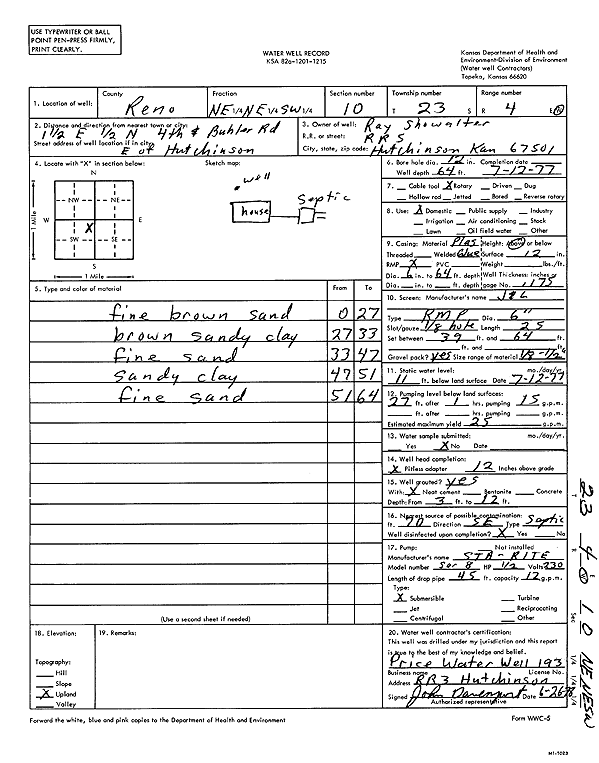 USE TYPEWRITER OR BALL
POINT PEN-PRESS FIRMLY,
PRINT CLEARLY.
WATER WELL RECORD
KSA 82a-1201-1215
Kansas Department of Health and
Environment-Division of Environment
(Water well Contractors)
Topeka, Kansas 66620
1. Location of well: County Reno Fraction NE 1/4 NE 1/4 SW 1/4 Section number 10 Township number T 23 S Range number R 4 E W
2. Distance and direction from nearest town or city: 1 1/2 E 1/2 N 4th & Buhler Rd
Street address of well location if in city: E of Hutchinson
3. Owner of well: Ray Showalter
R.R. or street: RR5
City, state, zip code: Hutchinson Kan 67501
4. Locate with "X" in section below: Sketch map:
N
NW NE
W E
X
SW SE
S
1 Mile
1 Mile
well
house
Septic
5. Type and color of material From To
fine brown sand 0 27
brown sandy clay 27 33
fine sand 33 47
sandy clay 47 51
fine sand 51 64
(Use a second sheet if needed)
6. Bore hole dia. 12 in. Completion date
Well depth 64 ft. 7-12-77
7. Cable tool X Rotary Driven Dug
Hollow rod Jetted Bored Reverse rotary
8. Use: X Domestic Public supply Industry
Irrigation Air conditioning Stock
Lawn Oil field water Other
9. Casing: Material Plas Height: Above or below
Threaded Welded Glue Surface 12 in.
RMP X PVC Weight lbs./ft.
Dia. 6 in. to 64 ft. depth Wall Thickness: inches or
Dia. in. to ft. depth gage No. .175
10. Screen: Manufacturer's name
Type RMP Dia. 6"
Slot/gauze 1/8 hole Length 25
Set between 39 ft. and 64 ft.
ft. and ft.
Gravel pack? yes Size range of material 1/8-1/2
11. Static water level: mo./day/yr.
11 ft. below land surface Date 7-12-77
12. Pumping level below land surfaces:
27 ft. after 1 hrs. pumping 15 g.p.m.
ft. after hrs. pumping g.p.m.
Estimated maximum yield 25 g.p.m.
13. Water sample submitted: mo./day/yr.
Yes X No Date
14. Well head completion:
X Pitless adapter 12 Inches above grade
15. Well grouted? yes
With: X Neat cement Bentonite Concrete
Depth: From 3 ft. to 12 ft.
16. Nearest source of possible contamination:
ft. 70 Direction SE Type Septic
Well disinfected upon completion? X Yes No
17. Pump: Not installed
Manufacturer's name STA-RITE
Model number HP 1/2 Volts 230
Length of drop pipe 45 ft. capacity 12 g.p.m.
Type:
X Submersible Turbine
Jet Reciprocating
Centrifugal Other
18. Elevation:
Topography:
Hill
Slope
X Upland
Valley
19. Remarks:
20. Water well contractor's certification:
This well was drilled under my jurisdiction and this report
is true to the best of my knowledge and belief.
Price Water Well 193
Business name License No.
Address RR3 Hutchinson
Signed John Davenport Date
Authorized representative
Forward the white, blue and pink copies to the Department of Health and Environment
Form WWC-5
T 23 R 4 E W Sec 10 NE NE SW 1/4 1/4 1/4